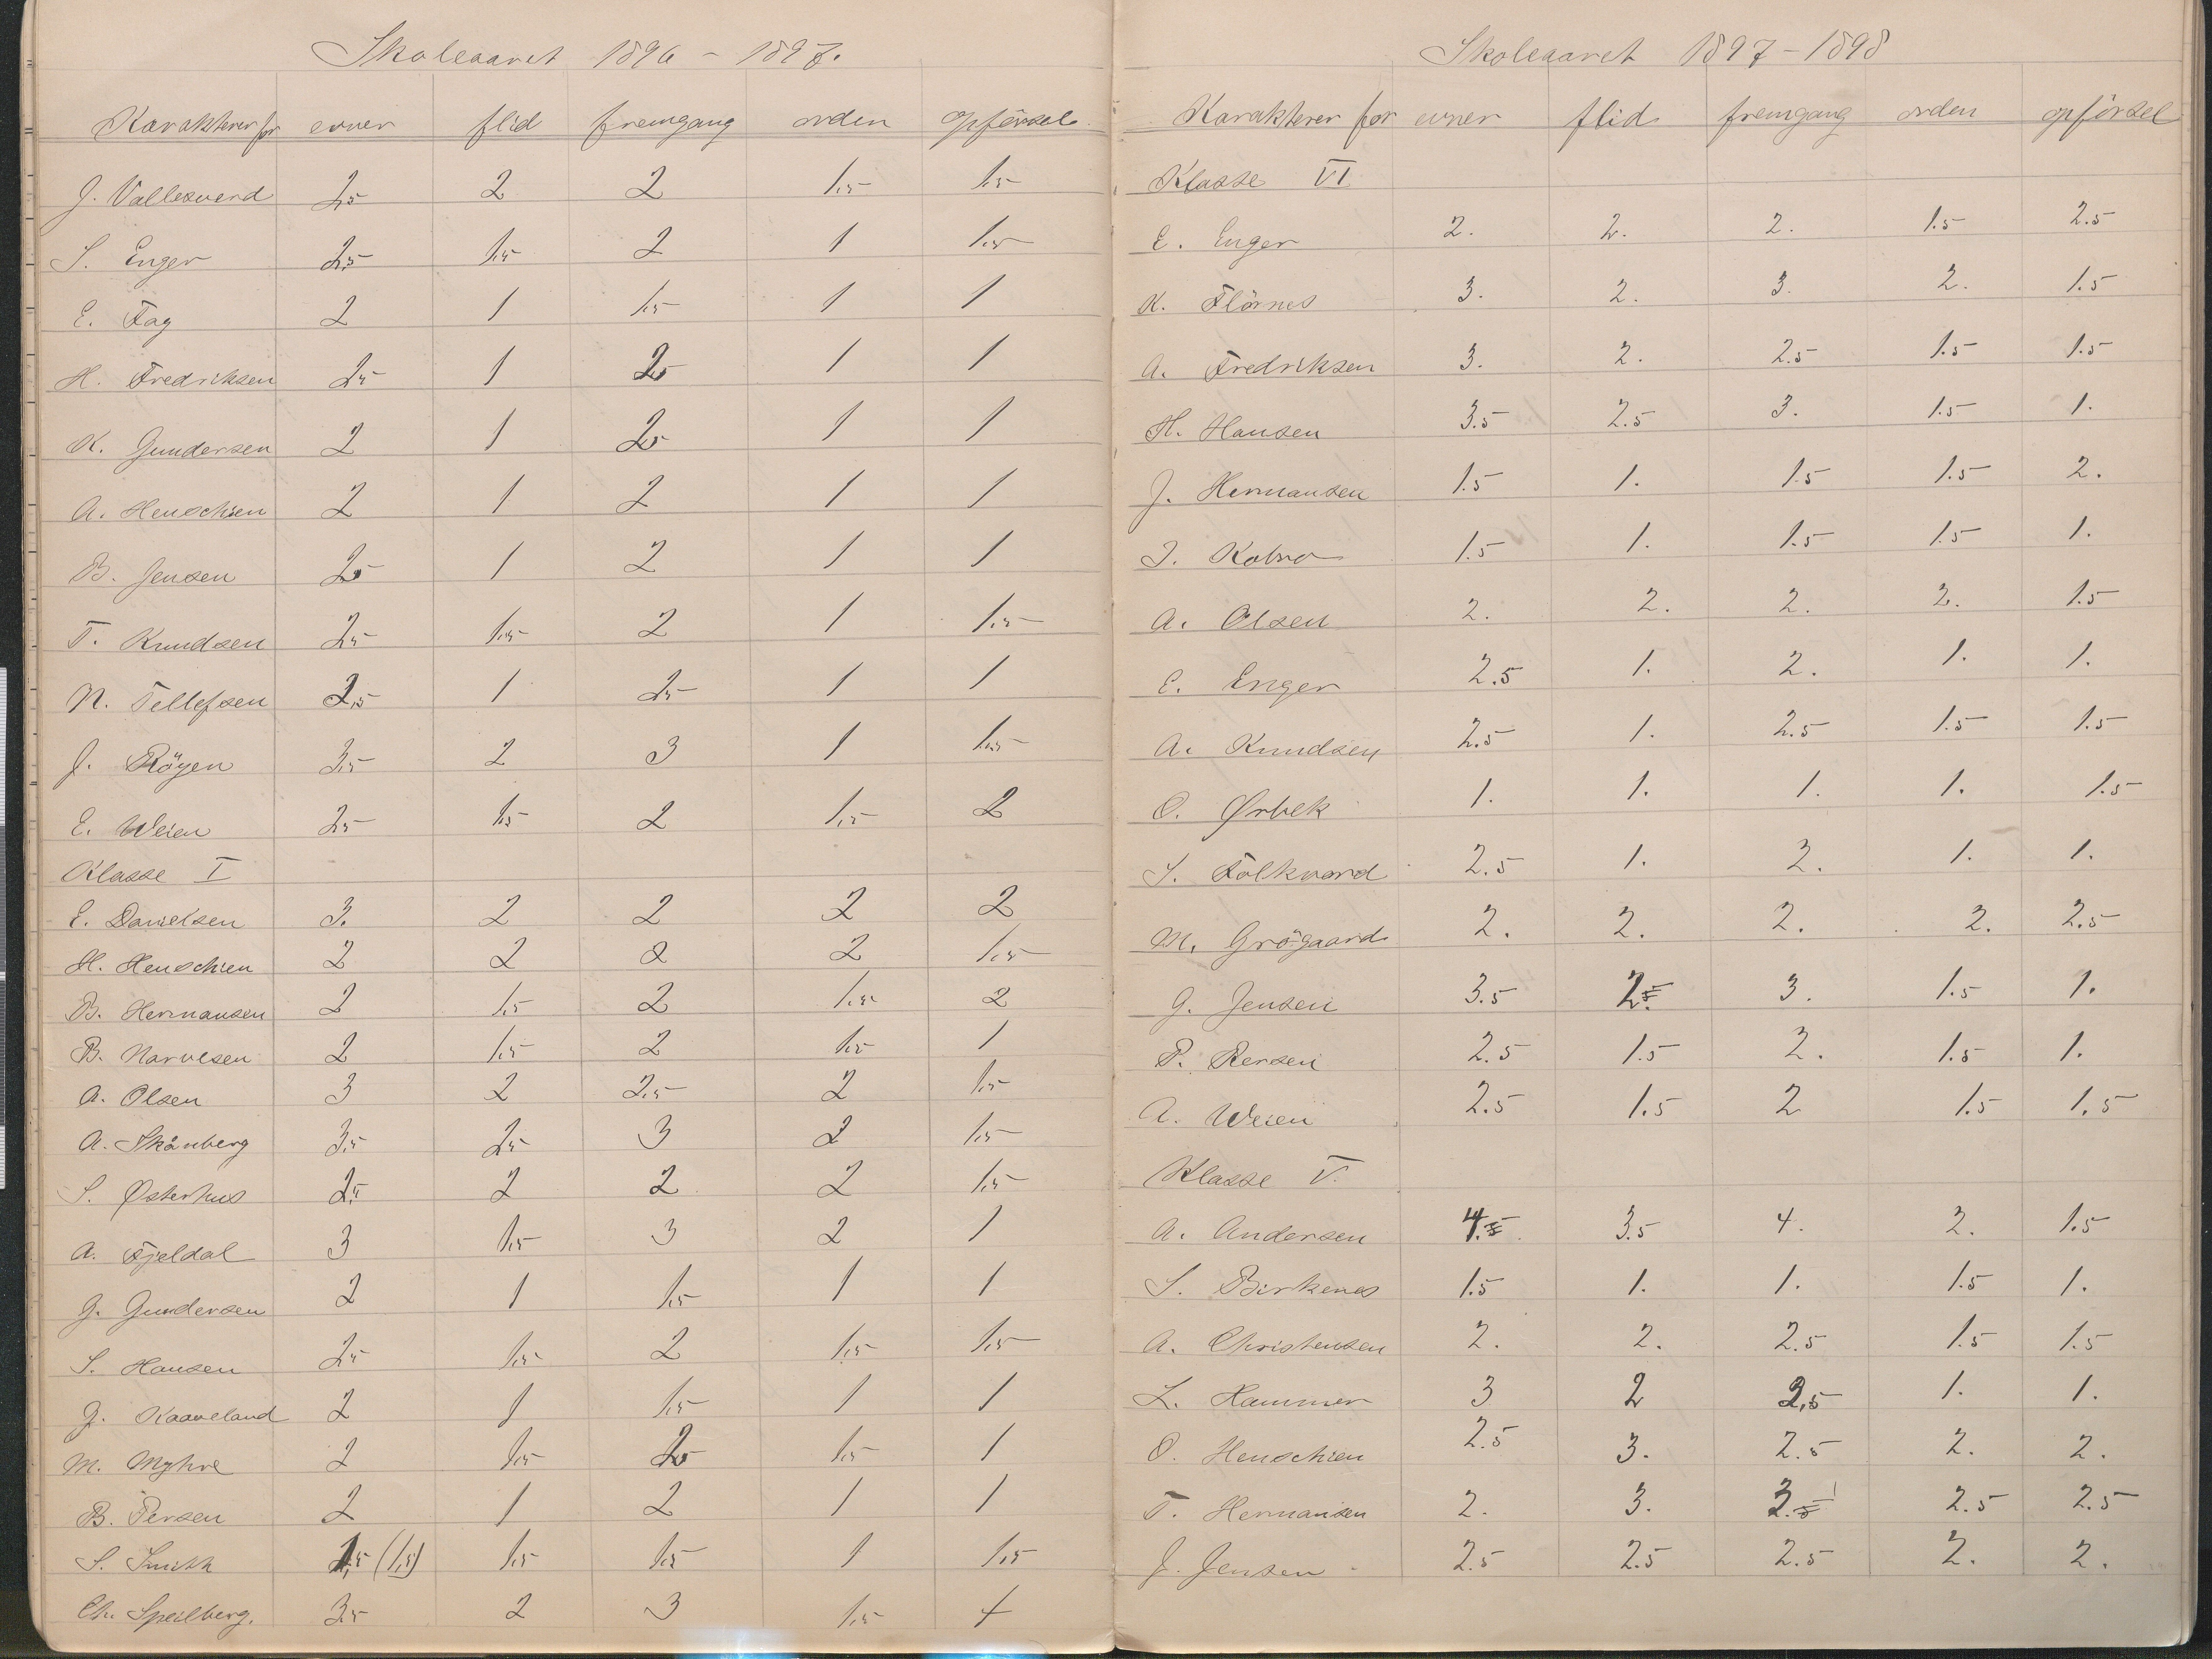 Skoleaaret 1896 - 1897.
Karakterer for evner flid fremgang orden opförsel
J. Vallesverd 2,5 2 2 1,5 1,5
S. Enger 2,5 1,5 2 1 1,5
E. Fag 2 1 1,5 1 1
H. Fredriksen 2,5 1 2,5 1 1
K. Gundersen 2 1 2,5 1 1
A. Henschien 2 1 2 1 1
B. Jensen 2,5 1 2 1 1
T. Knudsen 2,5 1,5 2 1 1,5
N. Tellefsen 2,5 1 2,5 1 1
J. Röyen 3,5 2 3 1 1,5
E. Weien 2,5 1,5 2 1,5 2
Klasse I
E. Danielsen 3. 2 2 2 2
H. Henschien 2 2 2 2 1,5
B. Hermansen 2 1,5 2 1,5 2
B. Narvesen 2 1,5 2 1,5 1
A. Olsen 3 2 2,5 2 1,5
A. Skånberg 3,5 2,5 3 2 1,5
S. Østerhus 2,5 2 2 2 1,5
A. Fjeldal 3 1,5 3 2 1
G. Gundersen 2 1 1,5 1 1
S. Hansen 2,5 1,5 2 1,5 1,5
J. Kaaveland 2 1 1,5 1 1
M. Myhre 2 1,5 2,5 1,5 1
B. Persen 2 1 2 1 1
S. Smith 1,5 (1,5) 1,5 1,5 1 1,5
Ch. Speilberg. 3,5 2 3 1,5 +
Skoleaaret 1897 - 1898
Karakterer for evner flid fremgang orden opförsel
Klasse VI
E. Enger 2. 2. 2. 1.5 2.5
K. Flörnes 3. 2. 3. 2. 1.5
A. Fredriksen 3. 2. 2.5 1.5 1.5
H. Hansen 3.5 2.5 3. 1.5 1.
J. Hermansen 1.5 1. 1.5 1.5 2.
J. Kobro 1.5 1. 1.5 1.5 1.
A. Olsen 2. 2. 2. 2. 1.5
E. Enger 2.5 1. 2. 1. 1.
A. Knudsen 2.5 1. 2.5 1.5 1.5
O. Ørbek 1. 1. 1. 1. 1.5
S. Folkvard 2.5 1. 2. 1. 1.
M. Grögaard 2. 2. 2. 2. 2.5
G. Jensen 3.5 2.5 3. 1.5 1.
P. Persen 2.5 1.5 2. 1.5 1.
A. Weien 2.5 1.5 2 1.5 1.5
Klasse V.
A. Andersen 4.5 3.5 4. 2. 1.5
S. Birkenes 1.5 1. 1. 1.5 1.
A. Christensen 2. 2. 2.5 1.5 1.5
L. Hammer 3 2 2,5 1. 1.
O. Henschien 2.5 3. 2.5 2. 2.
T. Hermansen 2. 3. 3. 2.5 2.5
J. Jensen 2.5 2.5 2.5 2. 2.